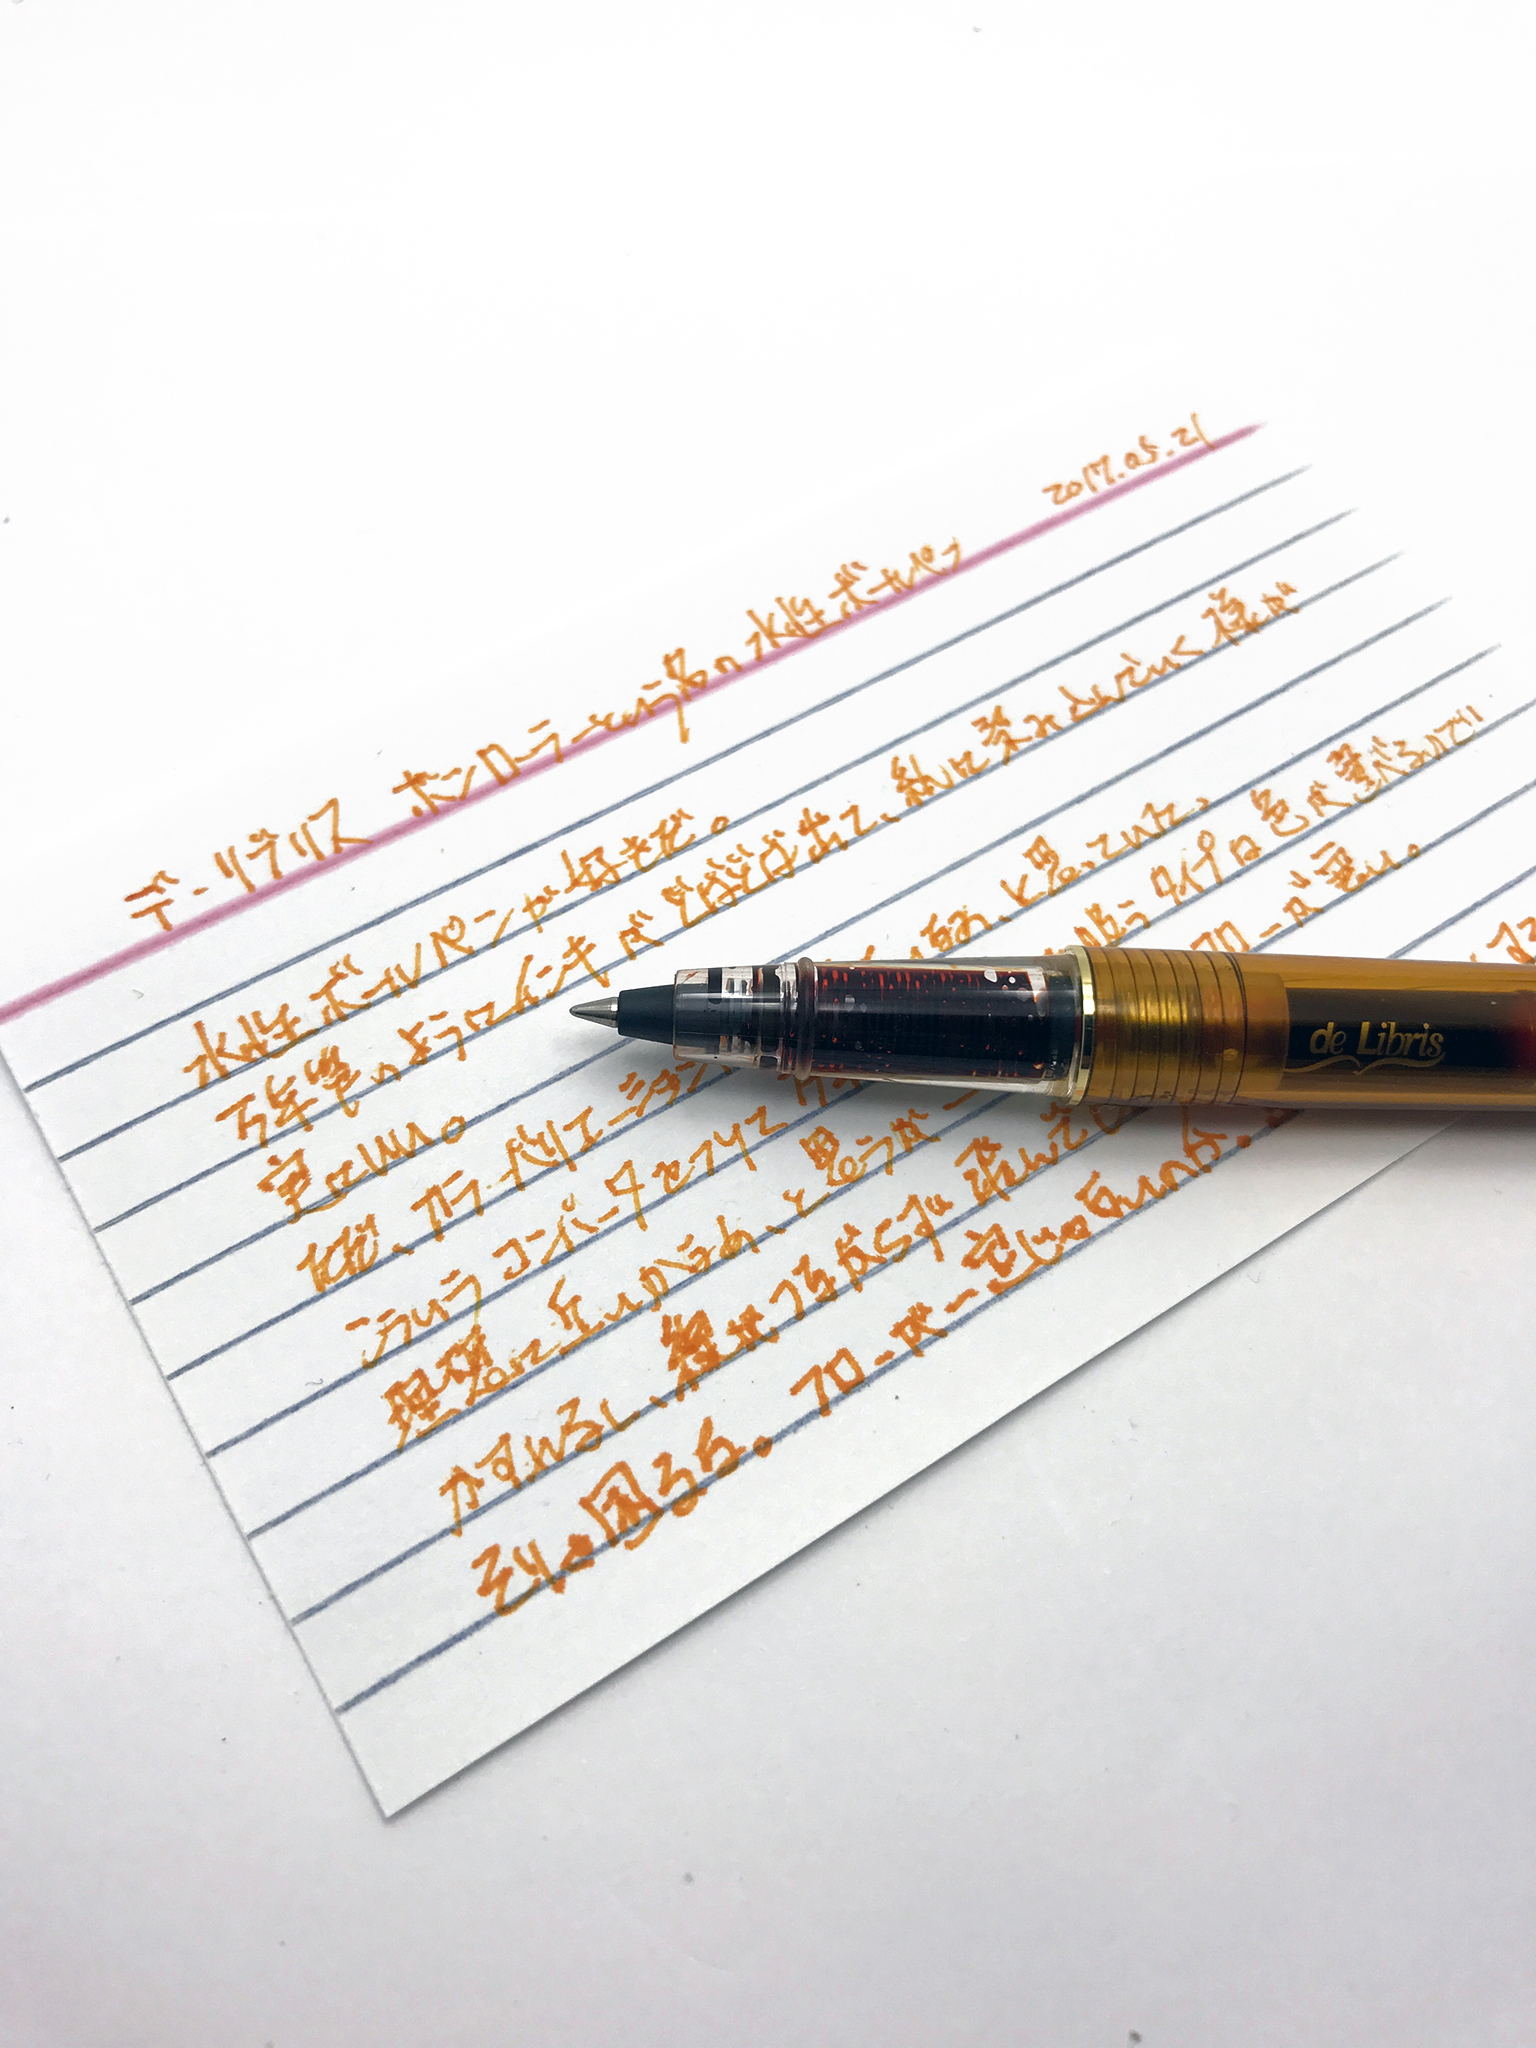 2017.05.21
デ・リブリス ボンローラーという名の水性ボールペン
水性ボールペンが好きだ。
万年筆のようにインキがどばどば出て、紙に染みこんでいく様が
実にいい。
ただ、カラーバリエーション と思っていた。
こういうコンバータをつけて タイプは色が選べるので
理想に近いかなぁ、と思うが フローが悪い。
かすれるし、線がつながらず飛んでし
それは困るな。フローが一定じゃないから。
de Libris